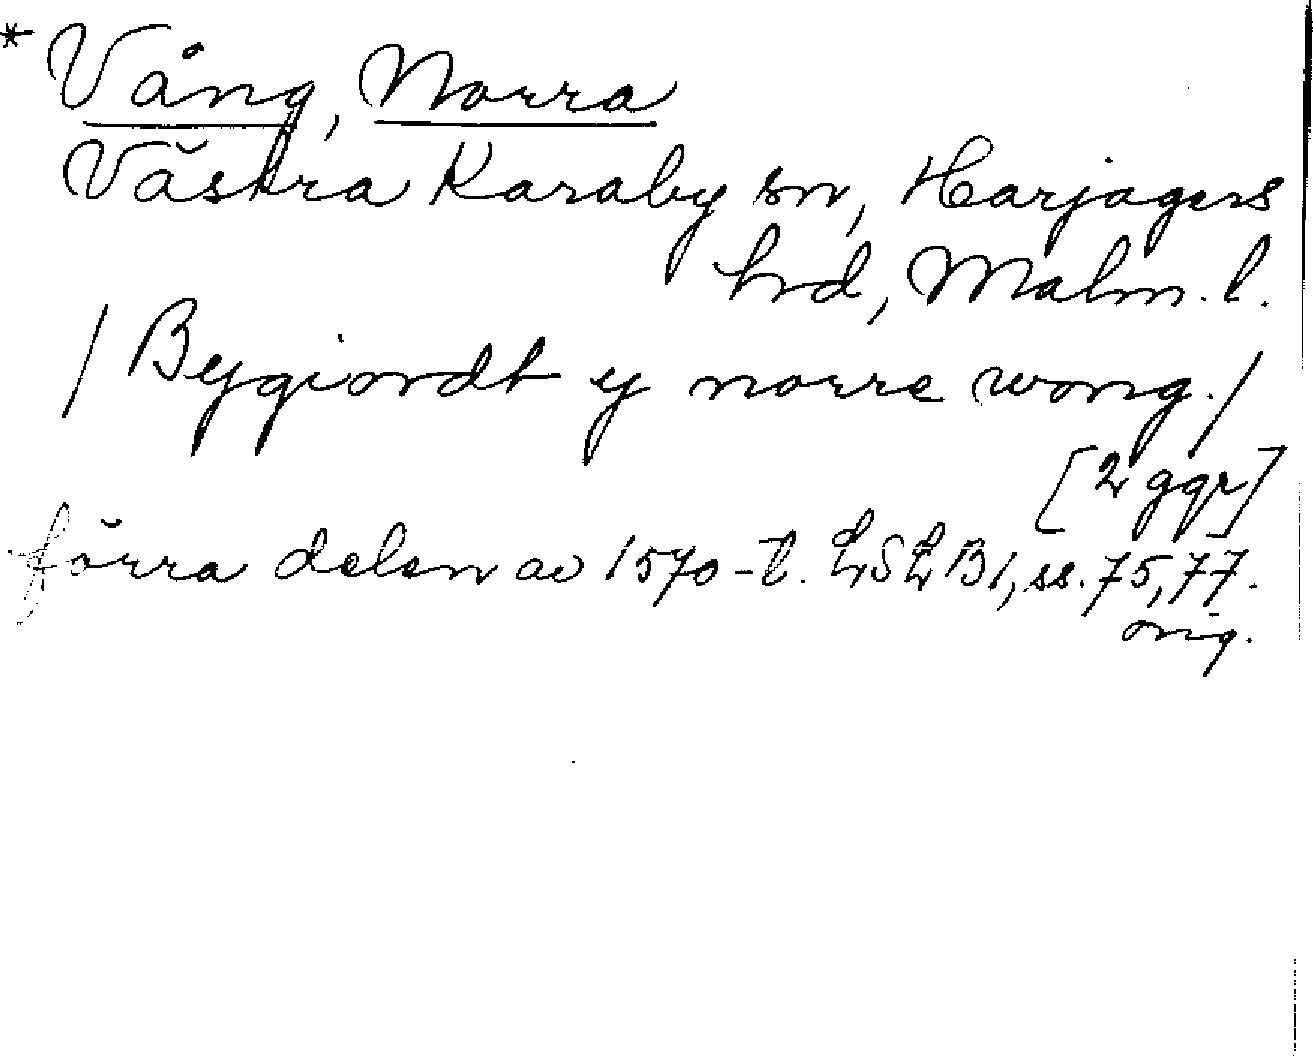 * Vång, Norra
Västra Karaby sn, Harjagers
hrd, Malm. l.
/ Bygiordt y norre wong. /
[2 ggr]
förra delen av 1570-t. LSLB1, ss. 75, 77.
orig.